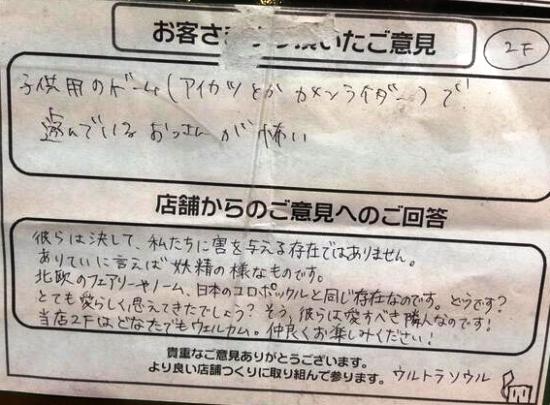 お客さま
頂いたご意見
2F
子供用のゲーム(アイカツとかカメンライダー)で
遊んでいるおっさんが怖い
店舗からのご意見へのご回答
彼らは決して、私たちに害を与える存在ではありません。
ありていに言えば妖精の様なものです。
北欧のフェアリーやノーム、日本のコロポックルと同じ存在なのです。どうです?
とても愛らしく思えてきたでしょう?そう、彼らは愛すべき隣人なのです!
当店2Fはどなたでもウェルカム。仲良くお楽しみください!
貴重なご意見ありがとうございます。
より良い店舗つくりに取り組んで参ります。
ウルトラソウル